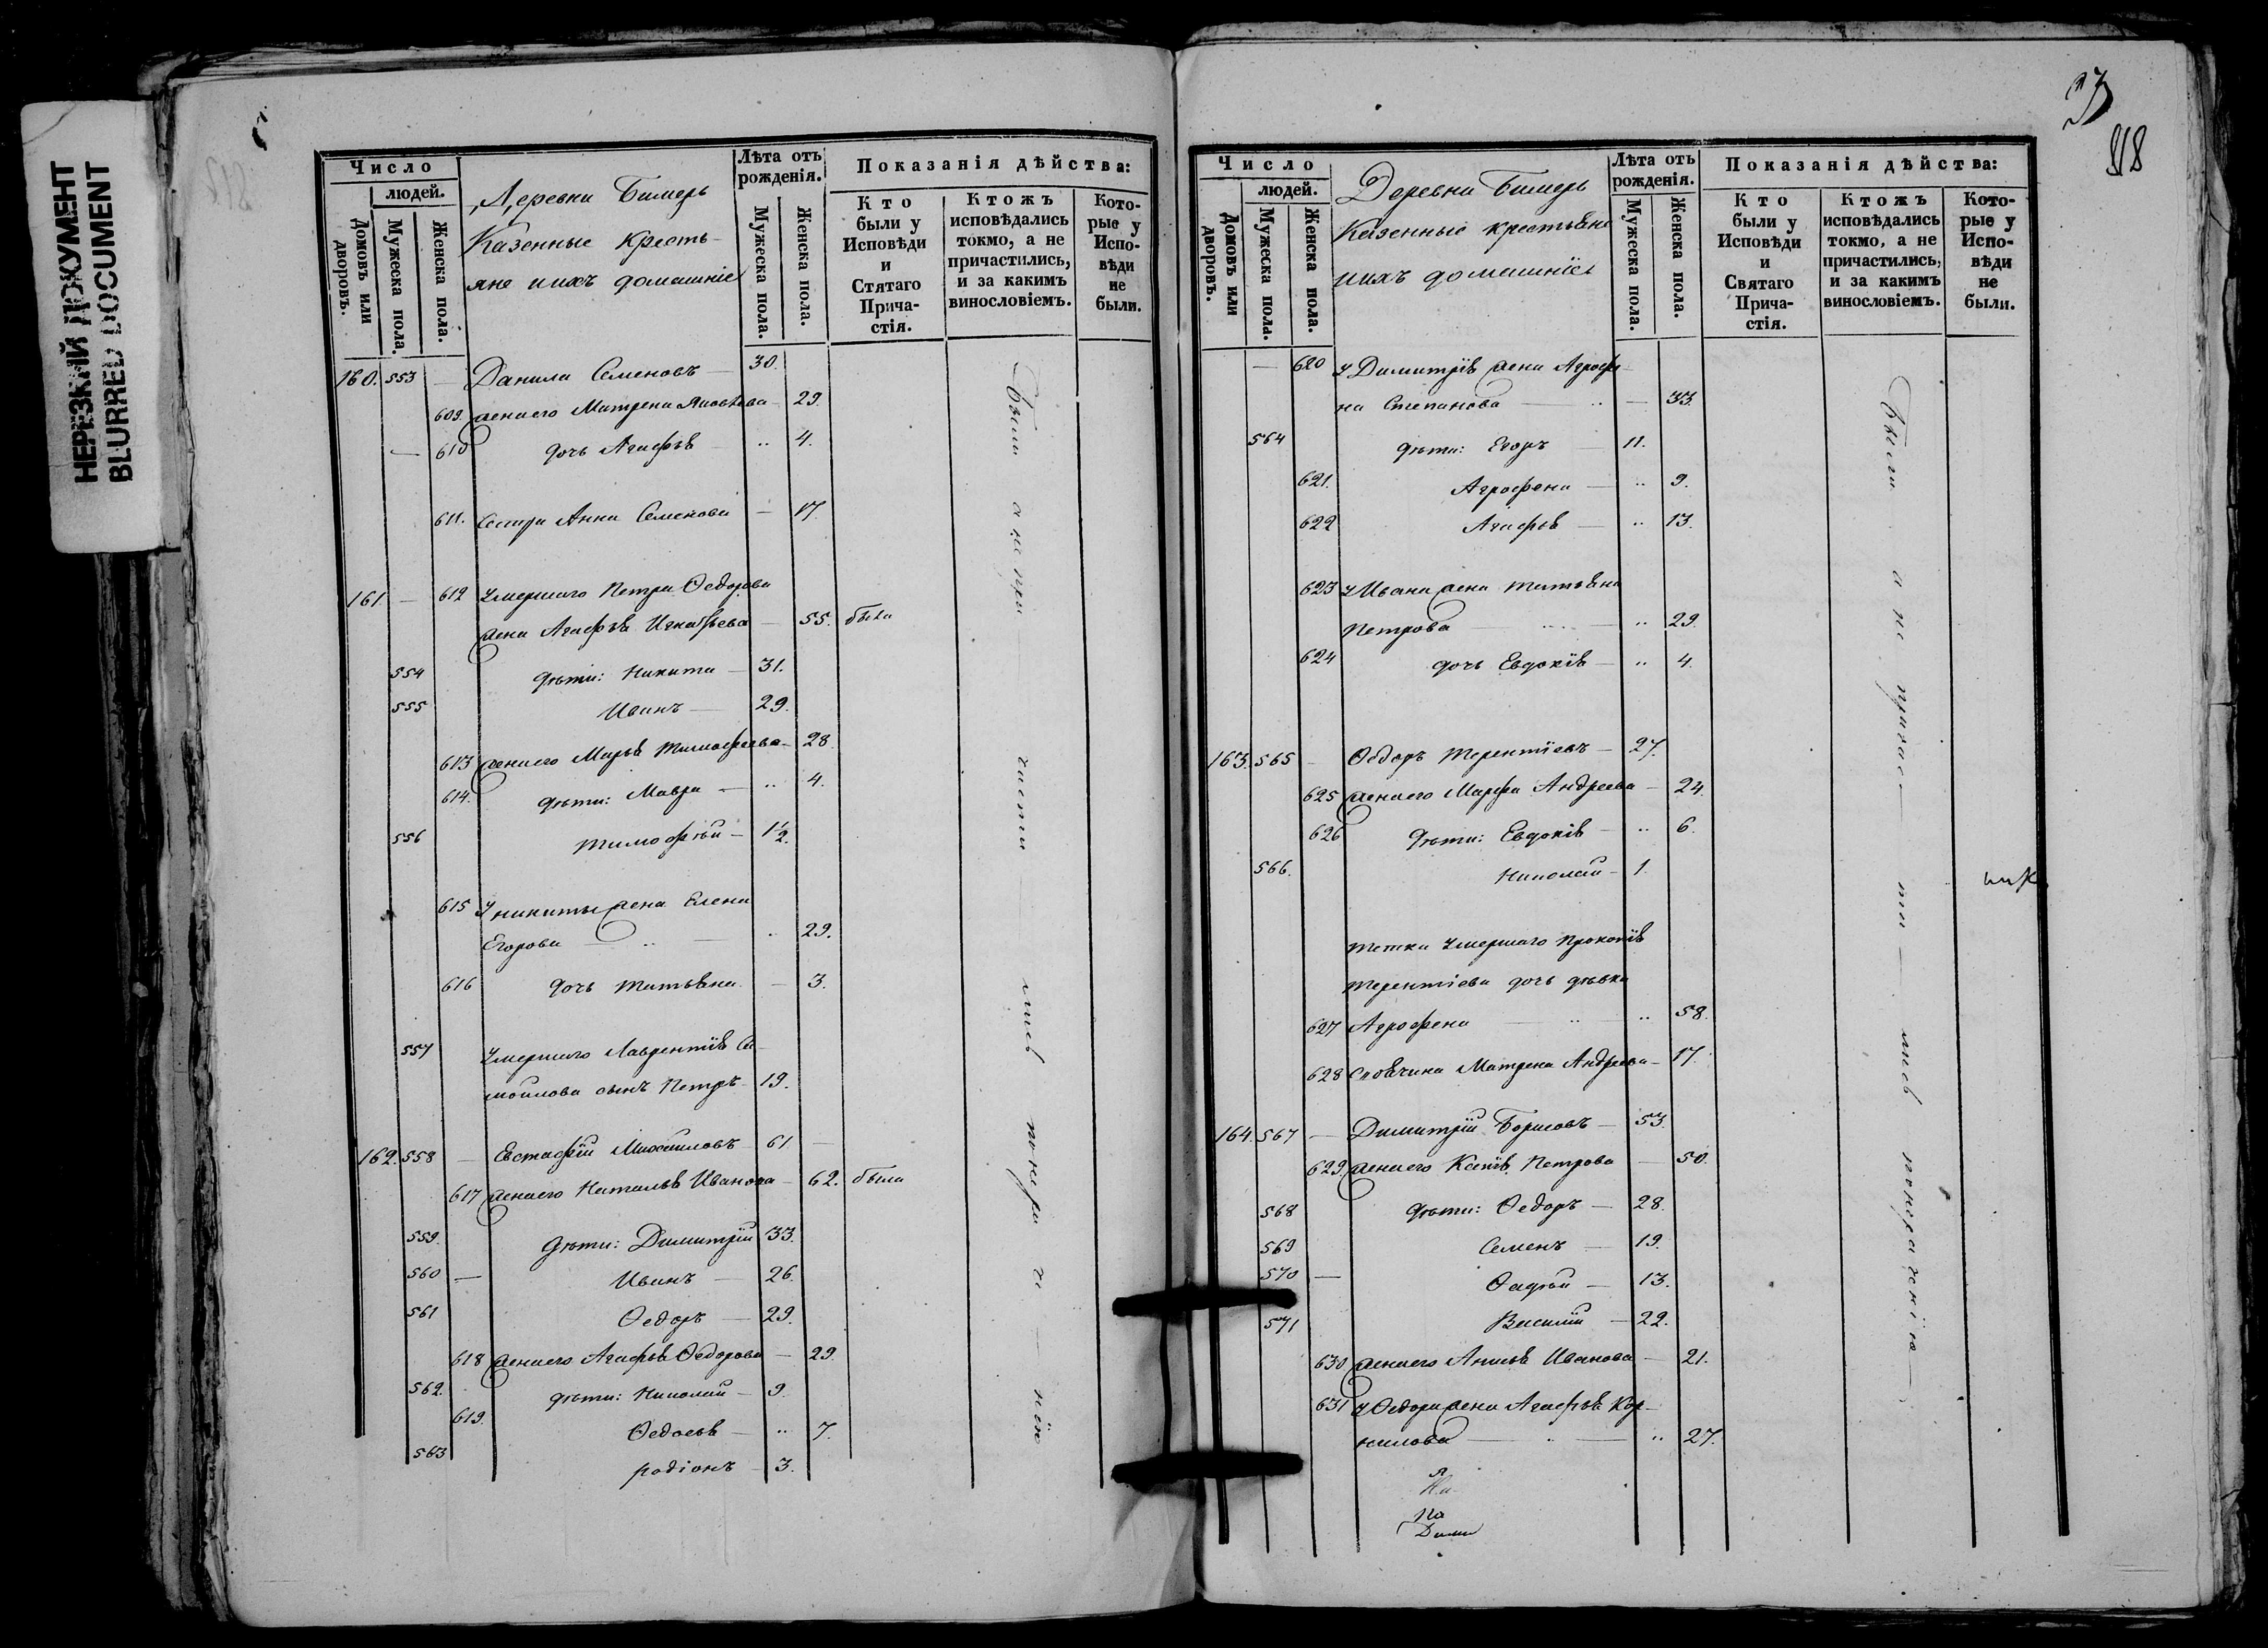 НЕРЕЗКИЙ ДОКУМЕНТ
BLURRED DOCUMENT
Число
людей.
Домовъ или дворовъ.
Мужеска пола.
Женска пола.
Деревни Бимерь
Казенные кресть-
яне и ихъ домашніе
Лѣта отъ рожденія.
Мужеска пола.
Женска пола.
Показанія дѣйства:
Кто были у Исповѣди и Стятаго Прича-стія.
Ктожъ исповѣдались токмо, а не причастились, и за какимъ винословіемъ.
Кото-рые у Испо-вѣди не были.
160. 553 — Данила Семеновъ — 30.
609. жена его Матрена Яковлева — 29.
— 610 дочь Агафья „ 4.
611. Сестра Анна Семенова — 17
161. — 612 Умершаго Петра Ѳедорова
жена Агафья Игнатьева — 55. была
554 дѣти: Никита — 31.
555 Иванъ — 29.
613 жена его Марья Тимофеева — 28
614. дѣти: Мавра — „ 4.
556 Тимофѣй — 1 1/2.
615 У Никиты жена Елена
Егорова — „ — „ 29.
616 дочь Татьяна — 3.
557 Умершаго Лаврентія Са-
мойлова сынъ Петръ — 19.
162. 558 — Евстафій Михайловъ — 61 —
617 жена его Наталья Иванова — 62. была
559. дѣти: Димитрій 33.
560 — Иванъ — 26.
561 Ѳедоръ — 29.
618 жена его Агафья Ѳедорова — 29.
562. дѣти: Николай — 9.
619. Ѳедосья — „ 7.
563 Родіонъ — 3.
Были а не при — части — лись по нера че — нію
37
Число
людей.
Домовъ или дворовъ.
Мужеска пола.
Женска пола.
Деревни Бимерь
Казенные крестьяне
и ихъ домашніе
Лѣта отъ рожденія.
Мужеска пола.
Женска пола.
Показанія дѣйства:
Кто были у Исповѣди и Святаго Прича-стія.
Ктожъ исповѣдались токмо, а не причастились, и за какимъ винословіемъ.
Кото-рые у Испо-вѣди не были.
— 620 У Димитрія жена Агрофе-
на Степанова — „ — 33.
564 дѣти: Егоръ — 11.
621. Агрофена — „ 9.
622 Агафья — „ 13.
623 У Ивана жена Татьяна
Петрова — „ 29.
624 дочь Евдокія — „ 4.
163. 565 — Ѳедоръ Терентіевъ — 27.
625 жена его Марфа Андреева — 24.
626 дѣти: Евдокія — „ 6.
566. Николай — 1.
Тетка Умершаго Прокопія
Терентіева дочь дѣвка
627 Агрофена — „ „ 58.
628 Своячина Матрена Андреева — 17.
164. 567 — Димитрій Борисовъ — 53.
629. жена его Ксенія Петрова — 50.
568 дѣти: Ѳедоръ — 28.
569 Семенъ — 19.
570 — Ѳадѣй — 13.
571 Василій — 22.
630 жена его Анисья Иванова — 21.
631 У Ѳедора жена Агафья Кор-
нилова — „ — „ 27.
Были а не причас — ти — лись по нераченію —
На
Дими